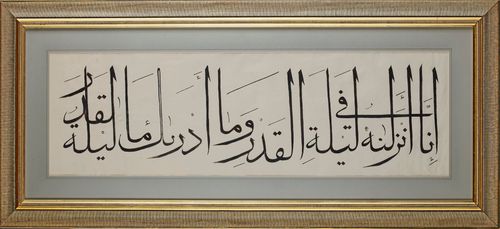 إنا أنزلنه في ليلة القدر وما أدريك ما ليلة القدر